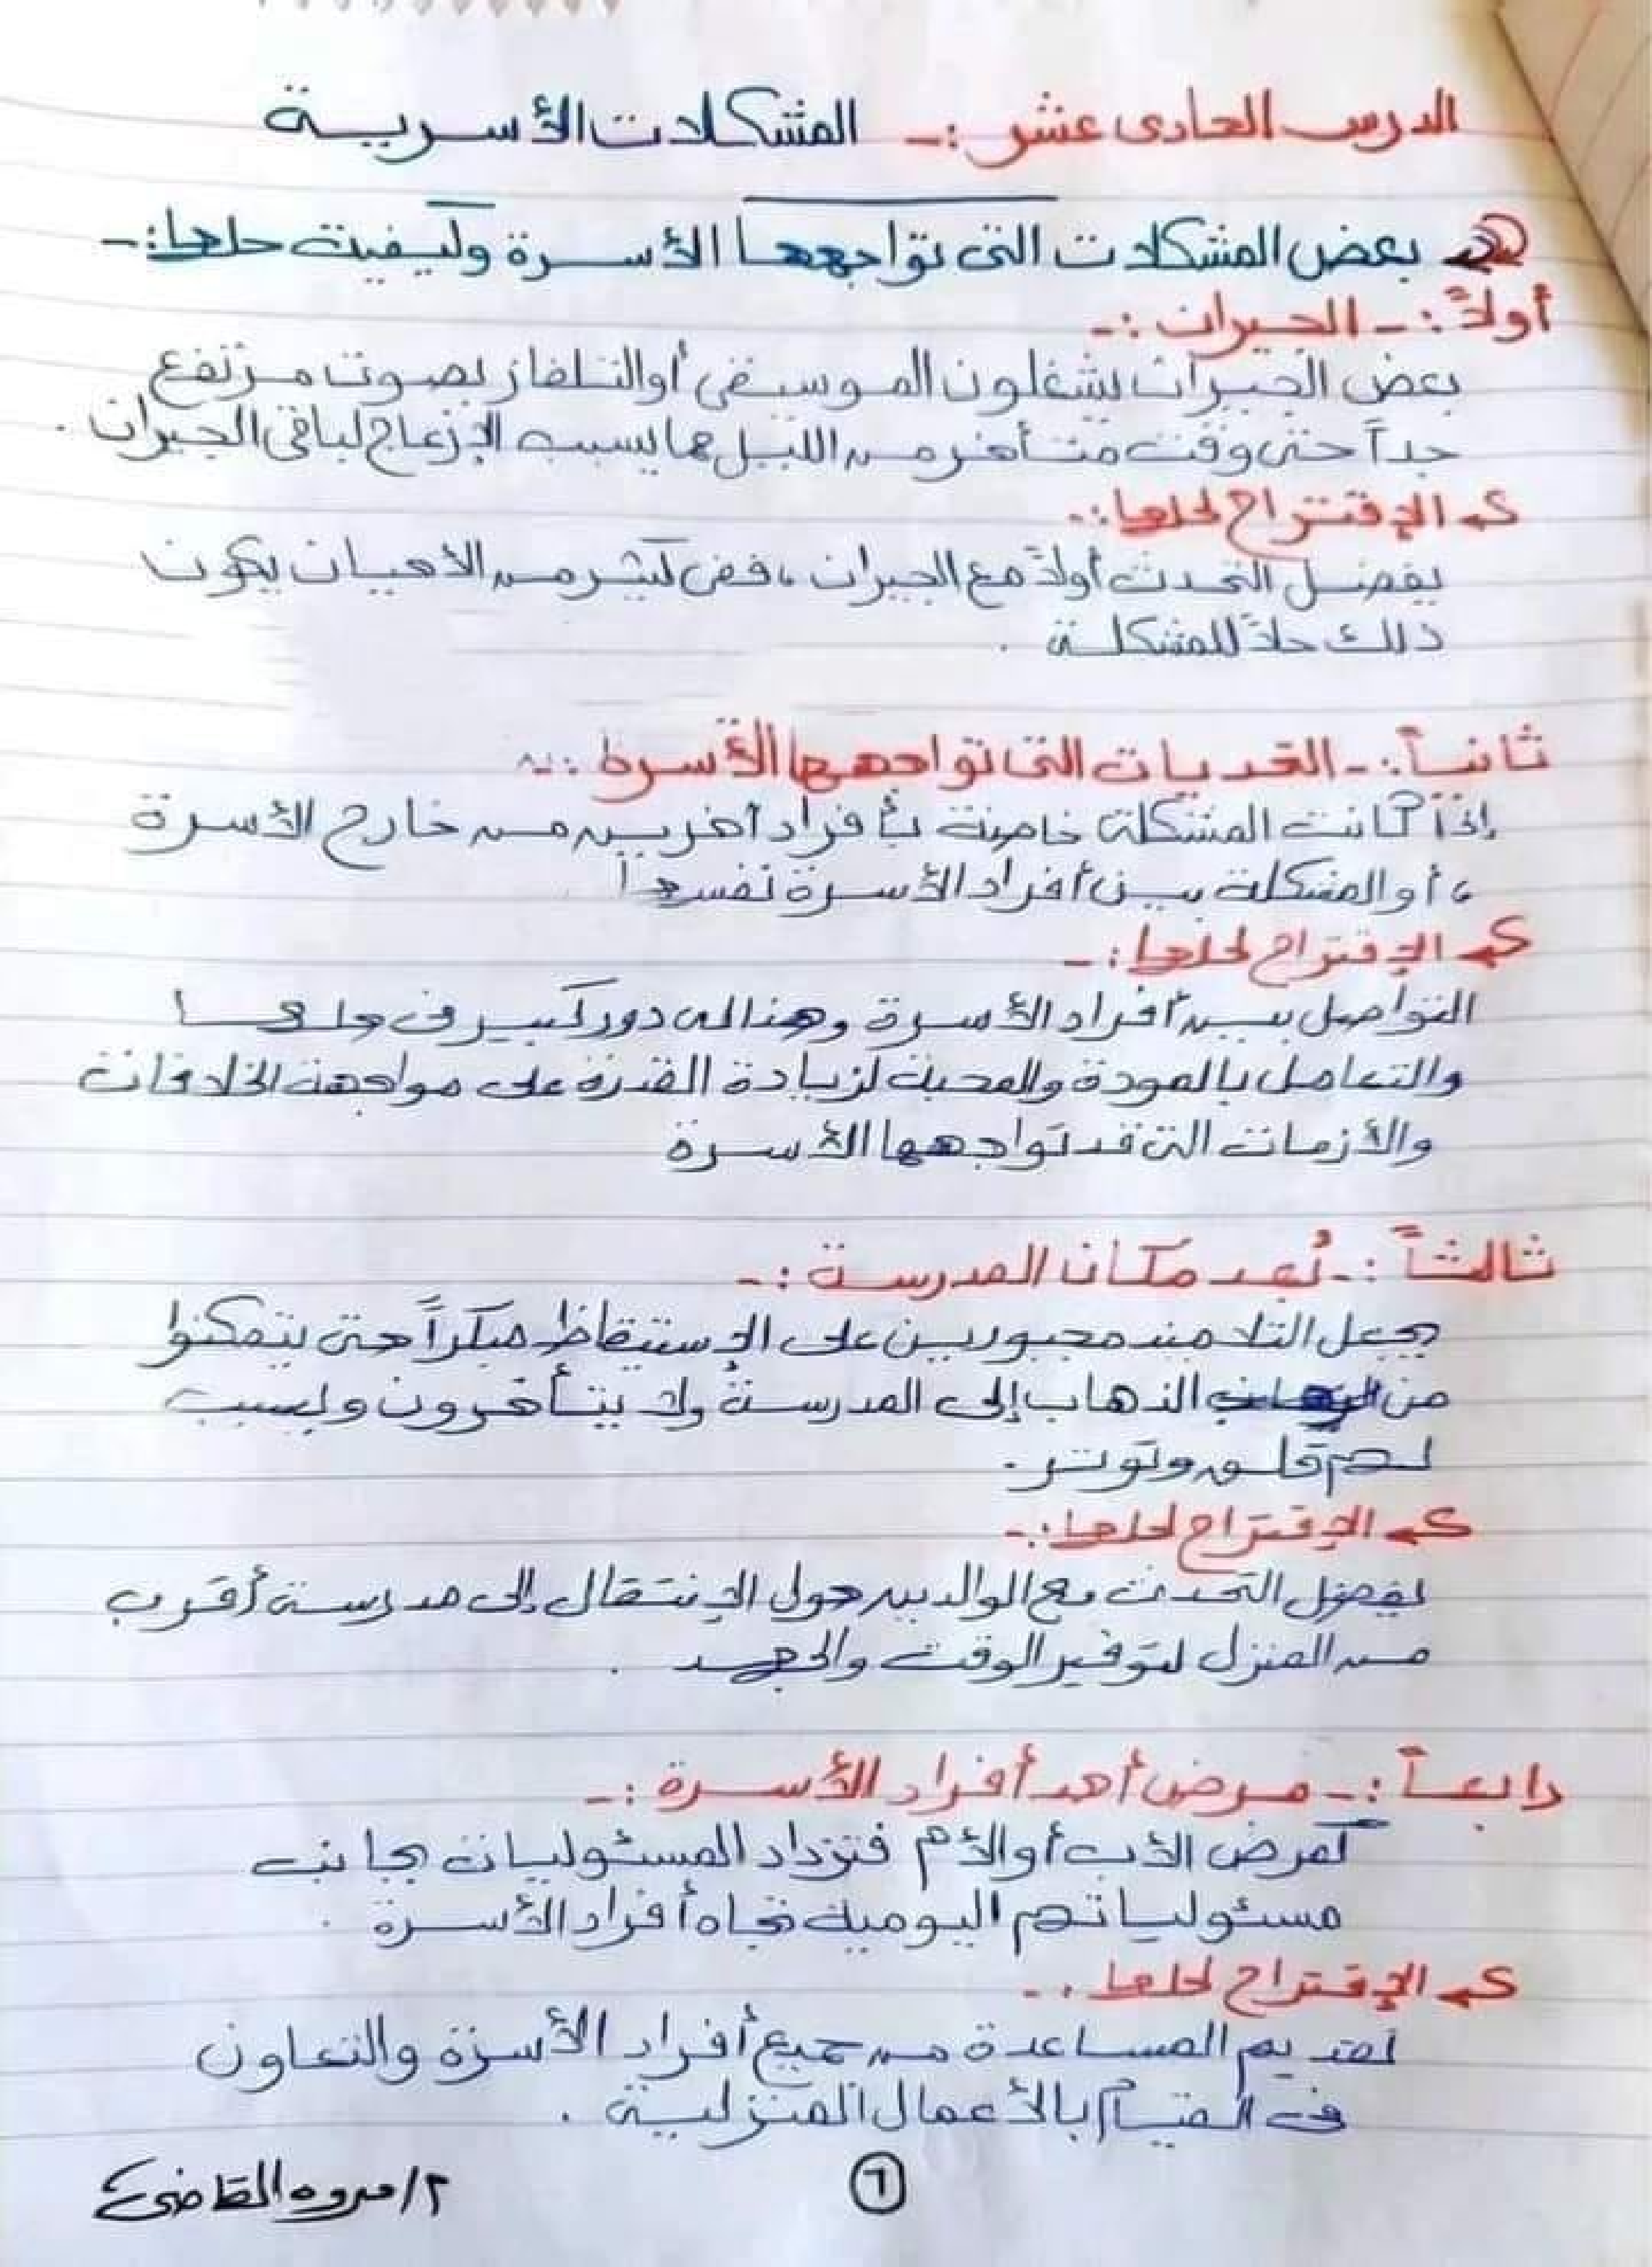 الدرس الحادى عشر :- المشكلات الأسرية
بعض المشكلات التى تواجهها الأسرة وكيفية حلها :-
أولاً :- الجيران :-
بعض الجيران يشغلون الموسيقى أو التلفاز بصوت مرتفع
جداً حتى وقت متأخر من الليل مما يسبب الإزعاج لباقى الجيران .
الإقتراح لحلها :-
يفضل التحدث أولاً مع الجيران ، ففى كثير من الأحيان يكون
ذلك حلاً للمشكلة .
ثانياً :- التحديات التى تواجهها الأسرة :-
إذا كانت المشكلة خاصة بأفراد آخرين من خارج الأسرة
، أو المشكلة بين أفراد الأسرة نفسها
الإقتراح لحلها :-
التواصل بين أفراد الأسرة وهنا له دور كبير فى حلها
والتعامل بالمودة والمحبة لزيادة القدرة على مواجهة الخلافات
والأزمات التى قد تواجهها الأسرة
ثالثاً :- بُعد مكان المدرسة :-
يجعل التلاميذ مجبوريين على الإستيقاظ مبكراً حتى يتمكنوا
من الذهاب إلى المدرسة ولا يتأخرون ويسبب
لهم قلق وتوتر .
الإقتراح لحلها :-
يفضل التحدث مع الوالدين حول الإنتقال إلى مدرسة أقرب
من المنزل لتوفير الوقت والجهد .
رابعاً :- مرض أحد أفراد الأسرة :-
كمرض الأب أو الأم فتزداد المسئوليات بجانب
مسئولياتهم اليومية تجاه أفراد الأسرة .
الإقتراح لحلها :-
تقديم المساعدة من جميع أفراد الأسرة والتعاون
فى القيام بالأعمال المنزلية .
٦
م/ مروه القاضى